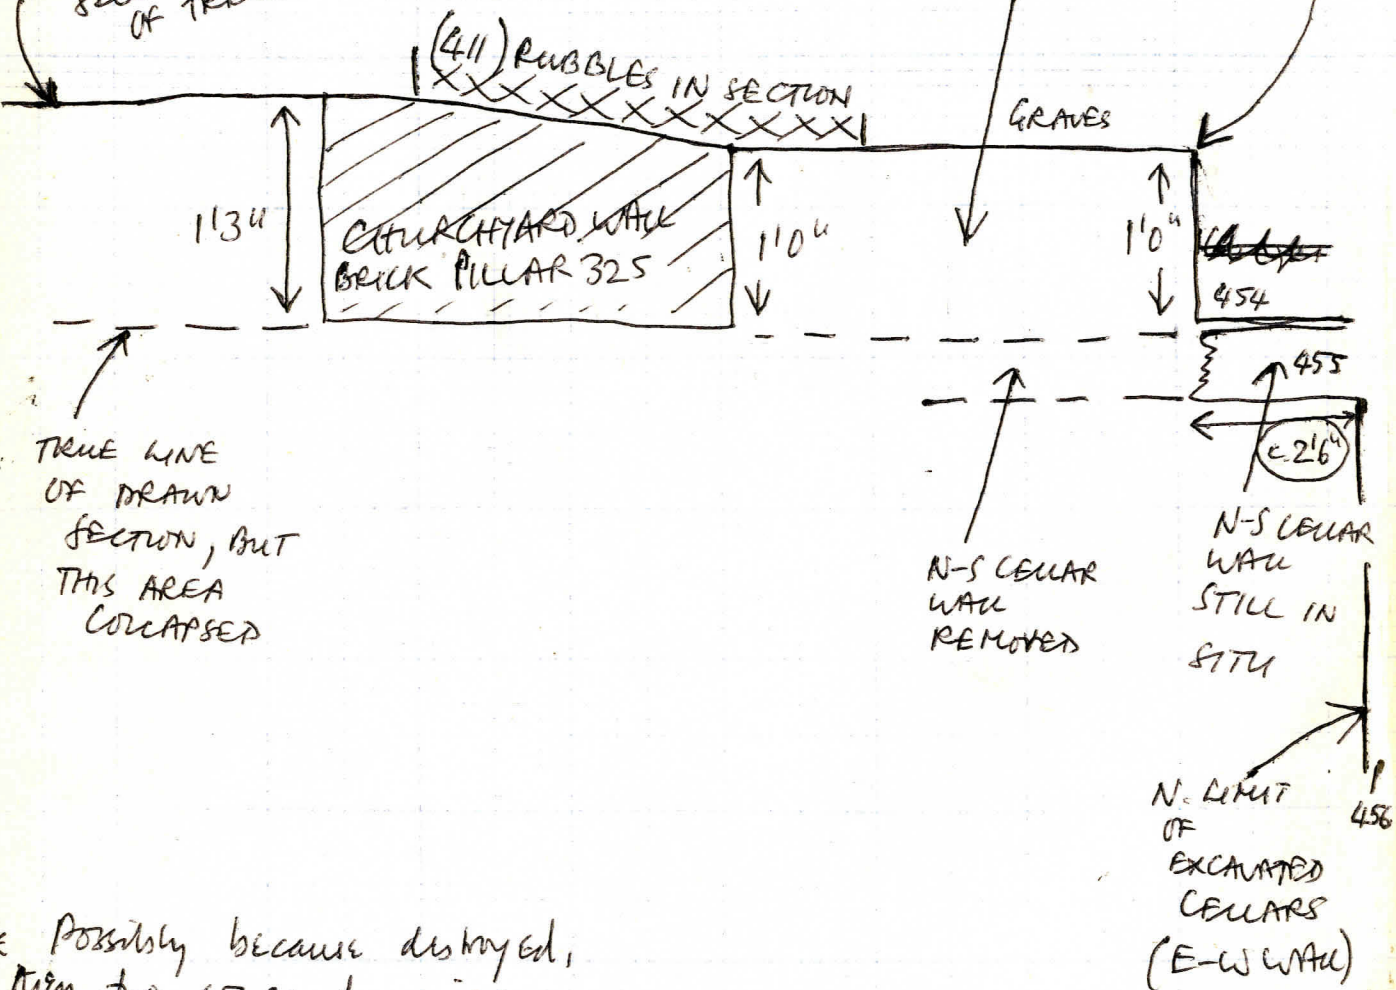 OF
(411) RUBBLES IN SECTION
GRAVES
1'3"
CHURCHYARD WALL
BRICK PILLAR 325
1'0"
1'0"
454
455
c. 2'6"
TRUE LINE
OF DRAWN
SECTION, BUT
THIS AREA
COLLAPSED
N-S CELLAR
WALL
REMOVED
N-S CELLAR
WALL
STILL IN
SITU
N. LIMIT
OF
EXCAVATED
CELLARS
(E-W WALL)
456
Possibly because destroyed,